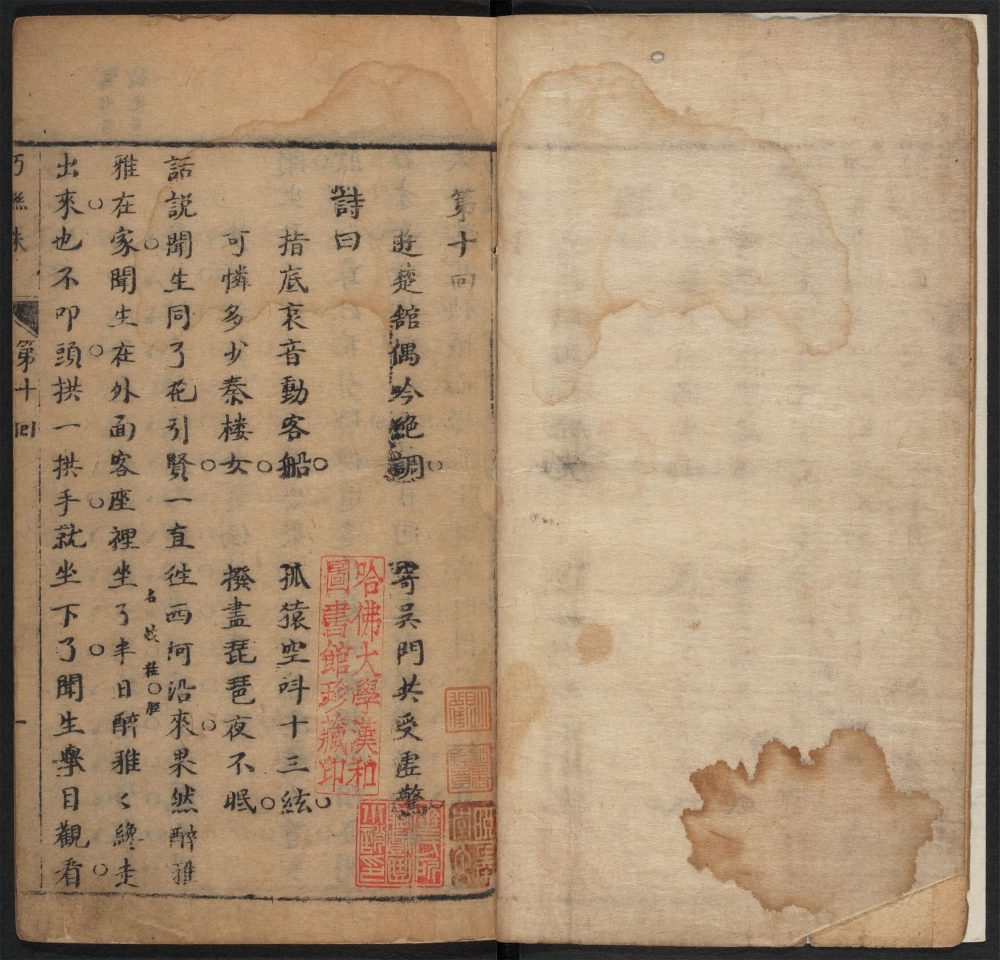 第十回
遊楚館偶吟絶調 寄吳門共受虛驚
詩曰
指底哀音動客船 孤猿空呌十三絃
可憐多少秦楼女 撥盡琵琶夜不眠
話説聞生同了花引賢一直徃西河沿來果然醉雅
雅在家聞生在外面客座裡坐了半日醉雅〻纔走
名妓
出來也不叩頭拱一拱手就坐下了聞生舉目觀看
第十回
一
哈佛大學漢和
圖書館珍藏印